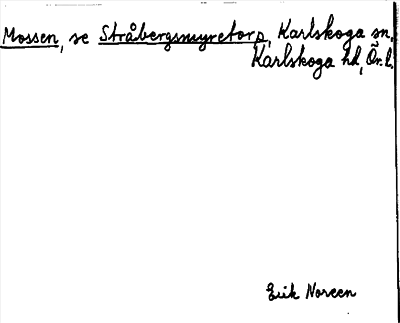 Mossen, se Stråbergsmyretorp, Karlskoga sn,
Karlskoga hd, Ör.l.
Erik Noreen